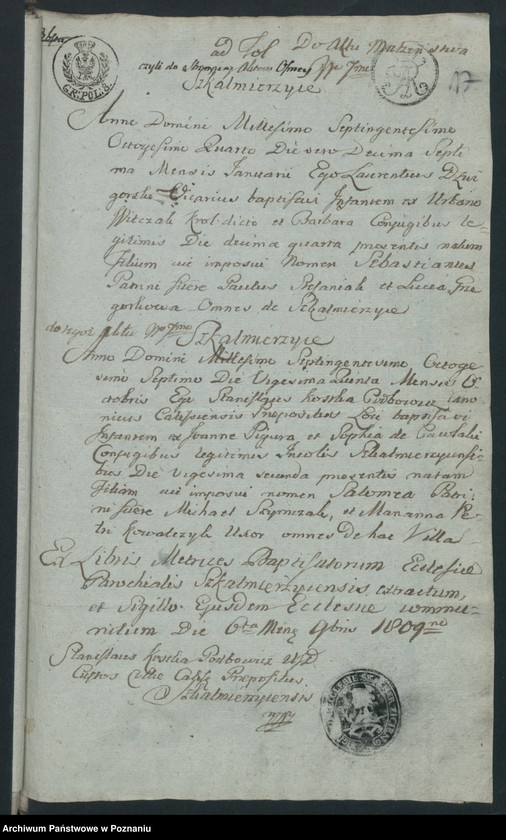 ad Fol Do Aktu Małżeństwa
czyli do
17
GR:POL:8.
Szkalmierzyce
Anno Domini Millesimo Septingentesimo
Octogesimo Quarto Die vero Decima Septi
ma Mensis Januarii Ego Laurentius
Vicarius baptisavi Infantem ex Urbano
Witczak et Barbara Conjugibus le=
gitimis Die decima quarta presentis natum
Filium cui imposui Nomen Sebastianus
Patrini fuere Paulus Stefaniak et Lucia
Omnes de Szkalmierzyce
Szkalmierzyce
Anno Domini Millesimo Septingentesimo Octoge
simo Septimo Die Vigesima Quinta Mensis Oc
tobris Ego Stanislaus Kostka Porbowicz Cano
nicus Calissiensis Prepositus Loci baptisavi
Infantem ex Joanne Pigura et Sophia de
Conjugibus legitimis Incolis Szkalmierzycensi
bus Die Vigesima secunda presentis natam
Filiam cui imposui nomen Salomea Patri:
ni fuere Michael Szymczak, et Marianna Pe=
tri Kowalczyk Uxor omnes de hac Villa
Ex Libris Metrices Baptisatorum Ecclesiæ
Parochialis Szkalmierzycensis extractum,
et Sigillo Ejusdem Ecclesiæ commu=
nitum Die 6ta 9bris 1809no
Stanislaus Kostka Porbowicz
Custos Prepositus
Szkalmierzycensis
Archiwum Państwowe w Poznaniu